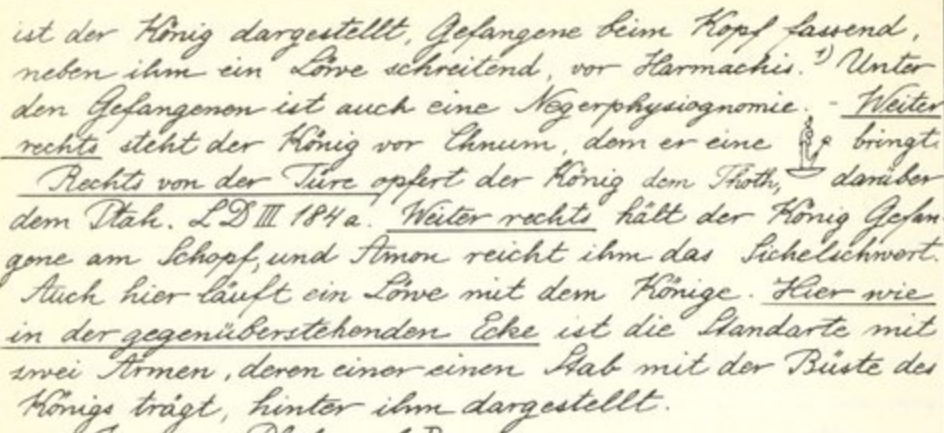 ist der König dargestellt, Gefangene beim Kopf fassend,
neben ihm ein Löwe schreitend, vor Harmachis.¹) Unter
den Gefangenen ist auch eine Negerphysiognomie. - Weiter
rechts steht der König vor Chnum, dem er eine bringt.
Rechts von der Türe opfert der König dem Thoth, darüber
dem Ptah. L D III 184 a. Weiter rechts hält der König Gefan
gene am Schopf, und Amon reicht ihm das Sichelschwert.
Auch hier läuft ein Löwe mit dem Könige. Hier wie
in der gegenüberstehenden Ecke ist die Standarte mit
zwei Armen, deren einer einen Stab mit der Büste des
Königs trägt, hinter ihm dargestellt.